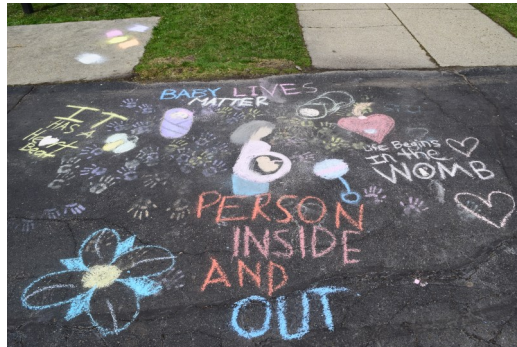 BABY LIVES
MATTER
IT
HAS A
Heart
Beat
Life Begins
IN the
WOMB
PERSON
INSIDE
AND
OUT